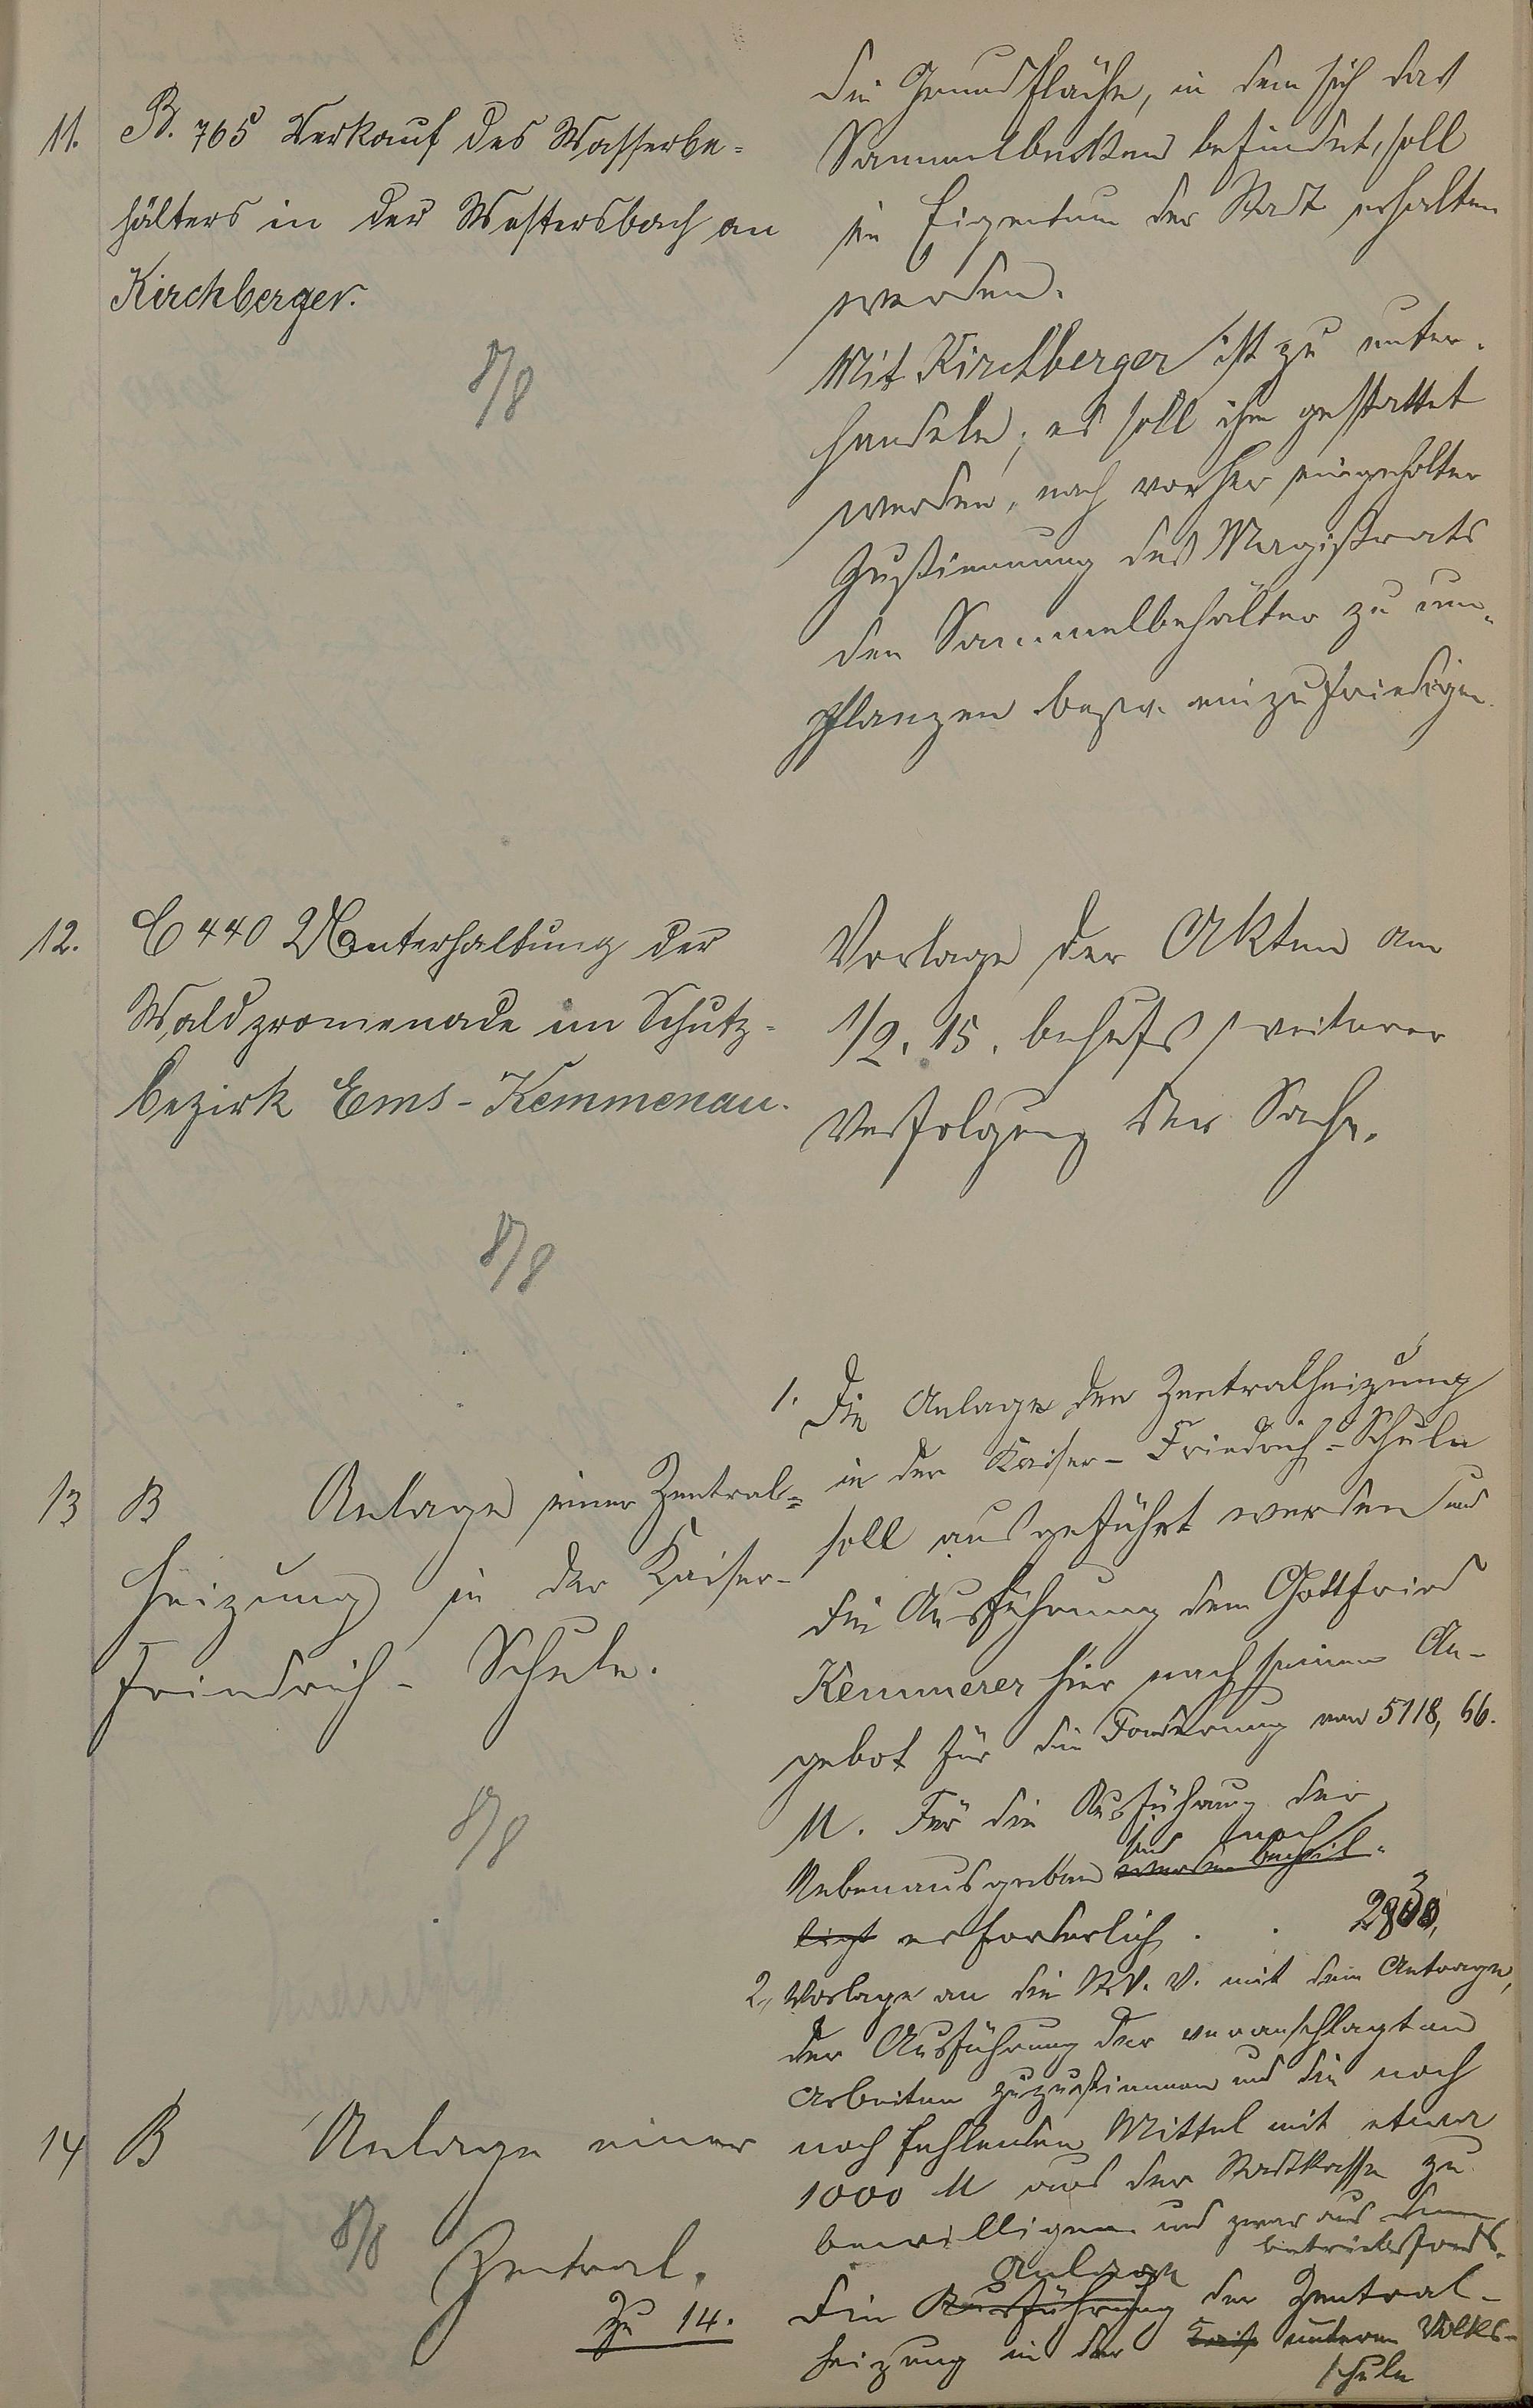 11. B. 765 Verkauf des Wasserbe=
hälters in der Westersbach an
Kirchberger.
8/8
Die Grundfläche, in dem sich das
Sammelbecken befindet, soll
im Eigentum der Stadt erhalten
werden.
Mit Kirchberger ist zu unter-
handeln; es soll ihm gestattet
werden, nach vorher eingeholter
Zustimmung des Magistrats
den Sammelbehälter zu um-
pflanzen bezw. einzufriedigen.
12. C 440 Unterhaltung der
Waldpromenade im Schutz-
bezirk Ems-Kemmenau.
8/8
Vorlage der Akten am
1/2. 15. behufs weiterer
Verfolgung der Sache.
13 B Anlage einer Zentral=
heizung in der Kaiser-
Friedrich-Schule.
8/8
1. Die Anlage der Zentralheizung
in der Kaiser-Friedrich-Schule
soll ausgeführt werden und
die Ausführung dem Gottfried
Kemmerer hier nach seinem An-
gebot für die Forderung von 5118,66.
M. Für die Ausführung der
sind noch
Nebenausgaben werden
erforderlich . .
2, Vorlage an die St. V. V. mit dem Antrage,
der Ausführung der veranschlagten
Arbeiten zuzustimmen und die noch
noch fehlenden Mittel mit etwa
1000 M aus der Stadtkasse zu
bewilligen und zwar aus dem
betriebsfonds.
14 B Anlage einer
8/8 Zentral.
zu 14.
Anlage
Die Ausführung der Zentral-
heizung in der Kais unteren Volks-
schule